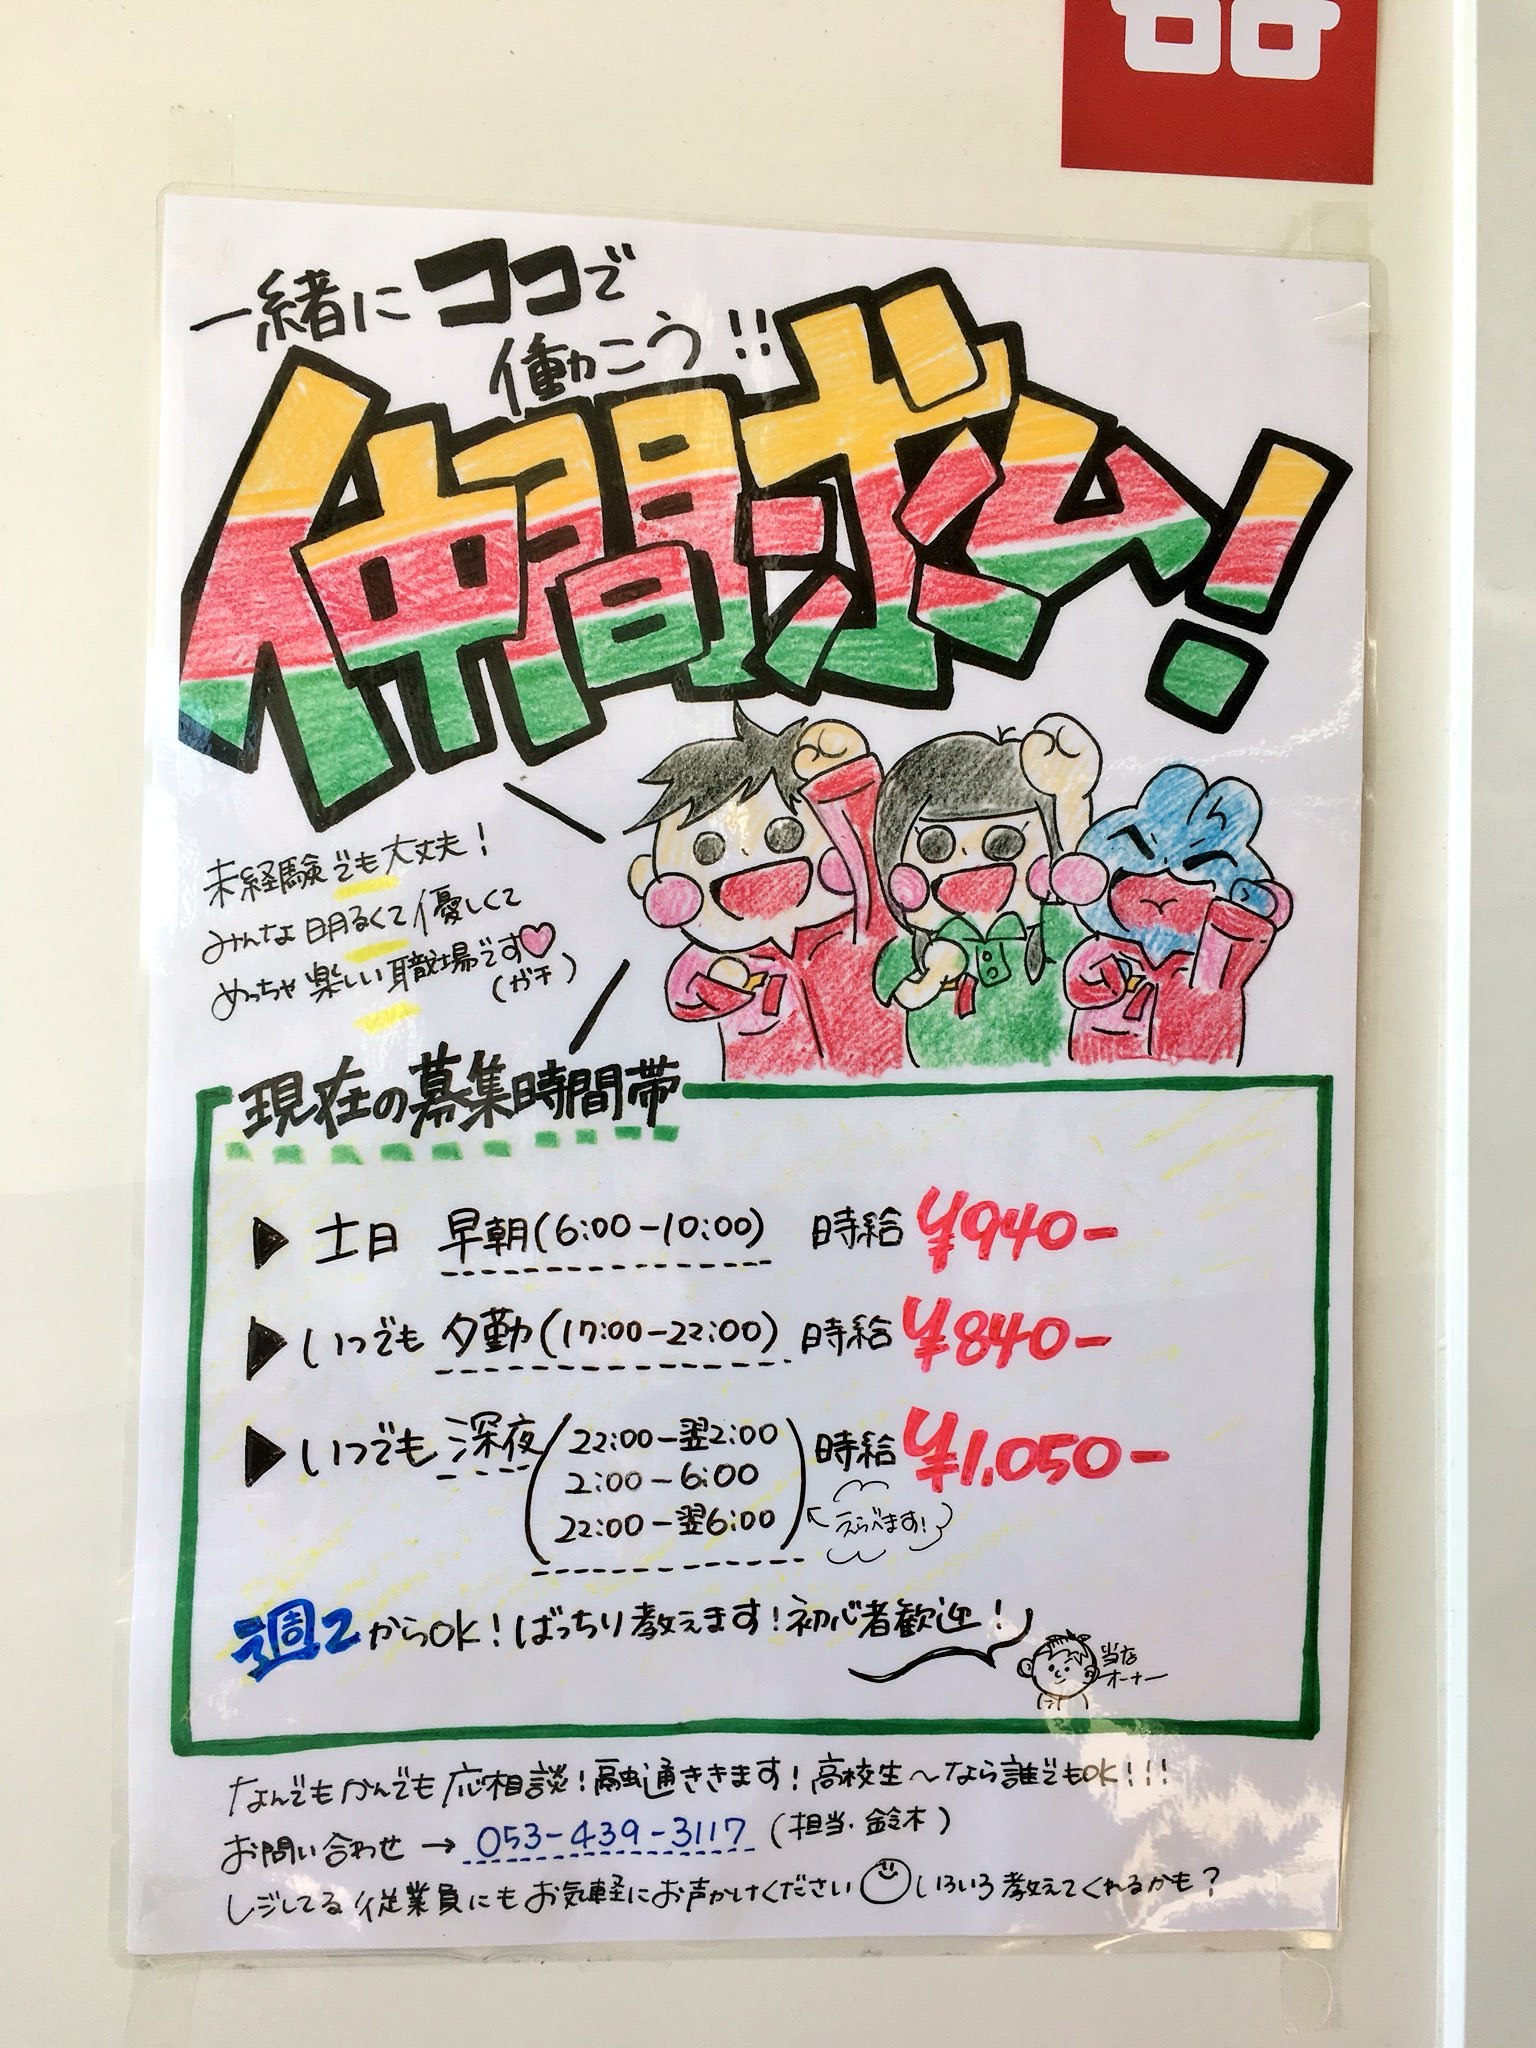 一緒にココで
働こう!!
仲間求ム!
未経験でも大丈夫!
みんな明るくて優しくて
めっちゃ楽しい職場です♡
(ガチ)
現在の募集時間帯
▶ 土日 早朝(6:00-10:00) 時給 ¥940-
▶ いつでも 夕勤(17:00-22:00) 時給 ¥840-
▶ いつでも 深夜(22:00-翌2:00
2:00-6:00
22:00-翌6:00) 時給 ¥1,050-
←えらべます!
週2からOK!ばっちり教えます!初心者歓迎!
当店
オーナー
なんでもかんでも応相談!融通ききます!高校生〜なら誰でもOK!!!
お問い合わせ → 053-439-3117 (担当・鈴木)
レジしてる従業員にもお気軽にお声かけください☺いろいろ教えてくれるかも?